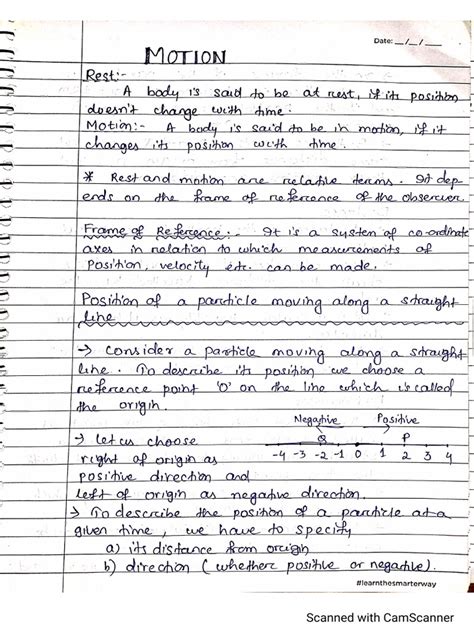 Date: __/__/__
MOTION
Rest:-
A body is said to be at rest, if its position
doesn't change with time.
Motion:- A body is said to be in motion, if it
changes its position with time.
* Rest and motion are relative terms. It dep
ends on the frame of reference of the observer
Frame of Reference:- It is a system of co-ordinate
axes in relation to which measurements of
Position, velocity etc. can be made.
Position of a particle moving along a straight
line
→ Consider a particle moving along a straight
line. To describe its position we choose a
reference point 'O' on the line which is called
the origin.
Negative Positive
→ Let us choose
Q P
right of origin as
-4 -3 -2 -1 0 1 2 3 4
positive direction and
left of origin as negative direction.
→ To describe the position of a particle at a
given time, we have to specify
a) its distance from origin
b) direction (whether positive or negative).
#learnthesmarterway
Scanned with CamScanner